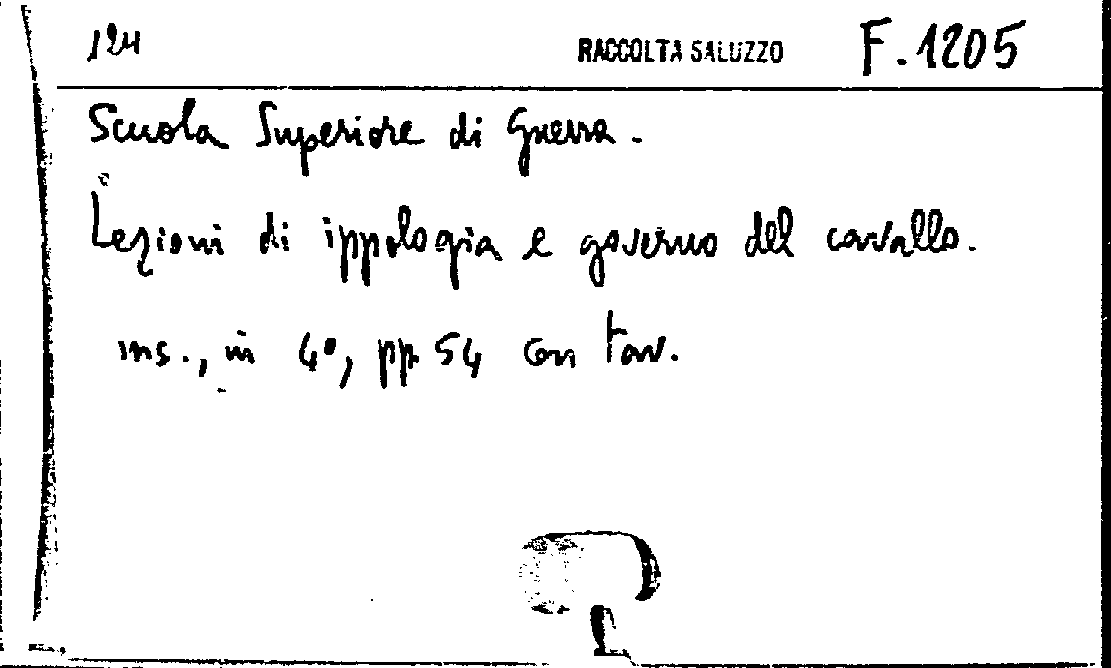 124 RACCOLTA SALUZZO F. 1205
Scuola Superiore di Guerra.
Lezioni di ippologia e governo del cavallo.
ms., in 4°, pp. 54 con tav.